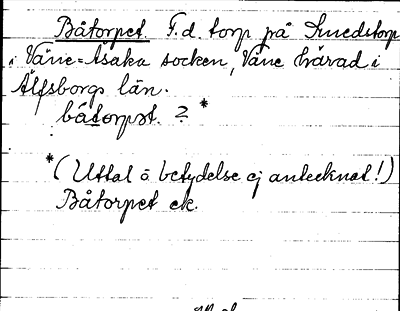 Båtorpet. F.d. torp på Smedstorp
i Väne-Åsaka socken, Väne härad i
Älfsborgs län.
båtorpət. ? *
*(Uttal o betydelse ej antecknat!)
Båtorpet ek.